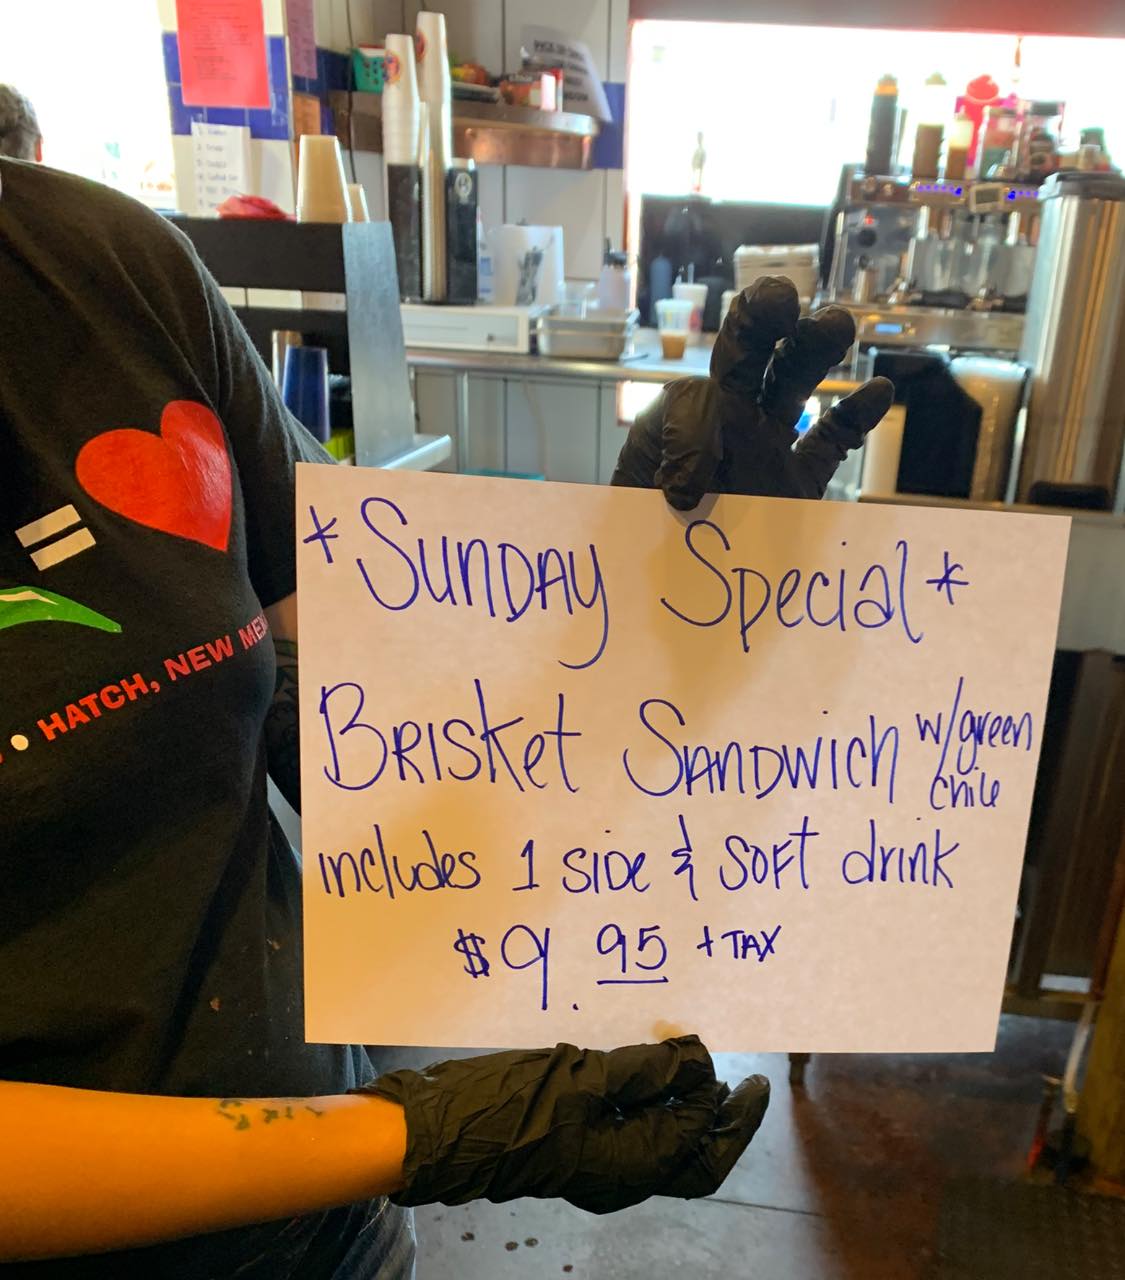 *Sunday Special*
Brisket Sandwich w/green
chile
includes 1 side & soft drink
$9.95 + TAX
=
• HATCH, NEW